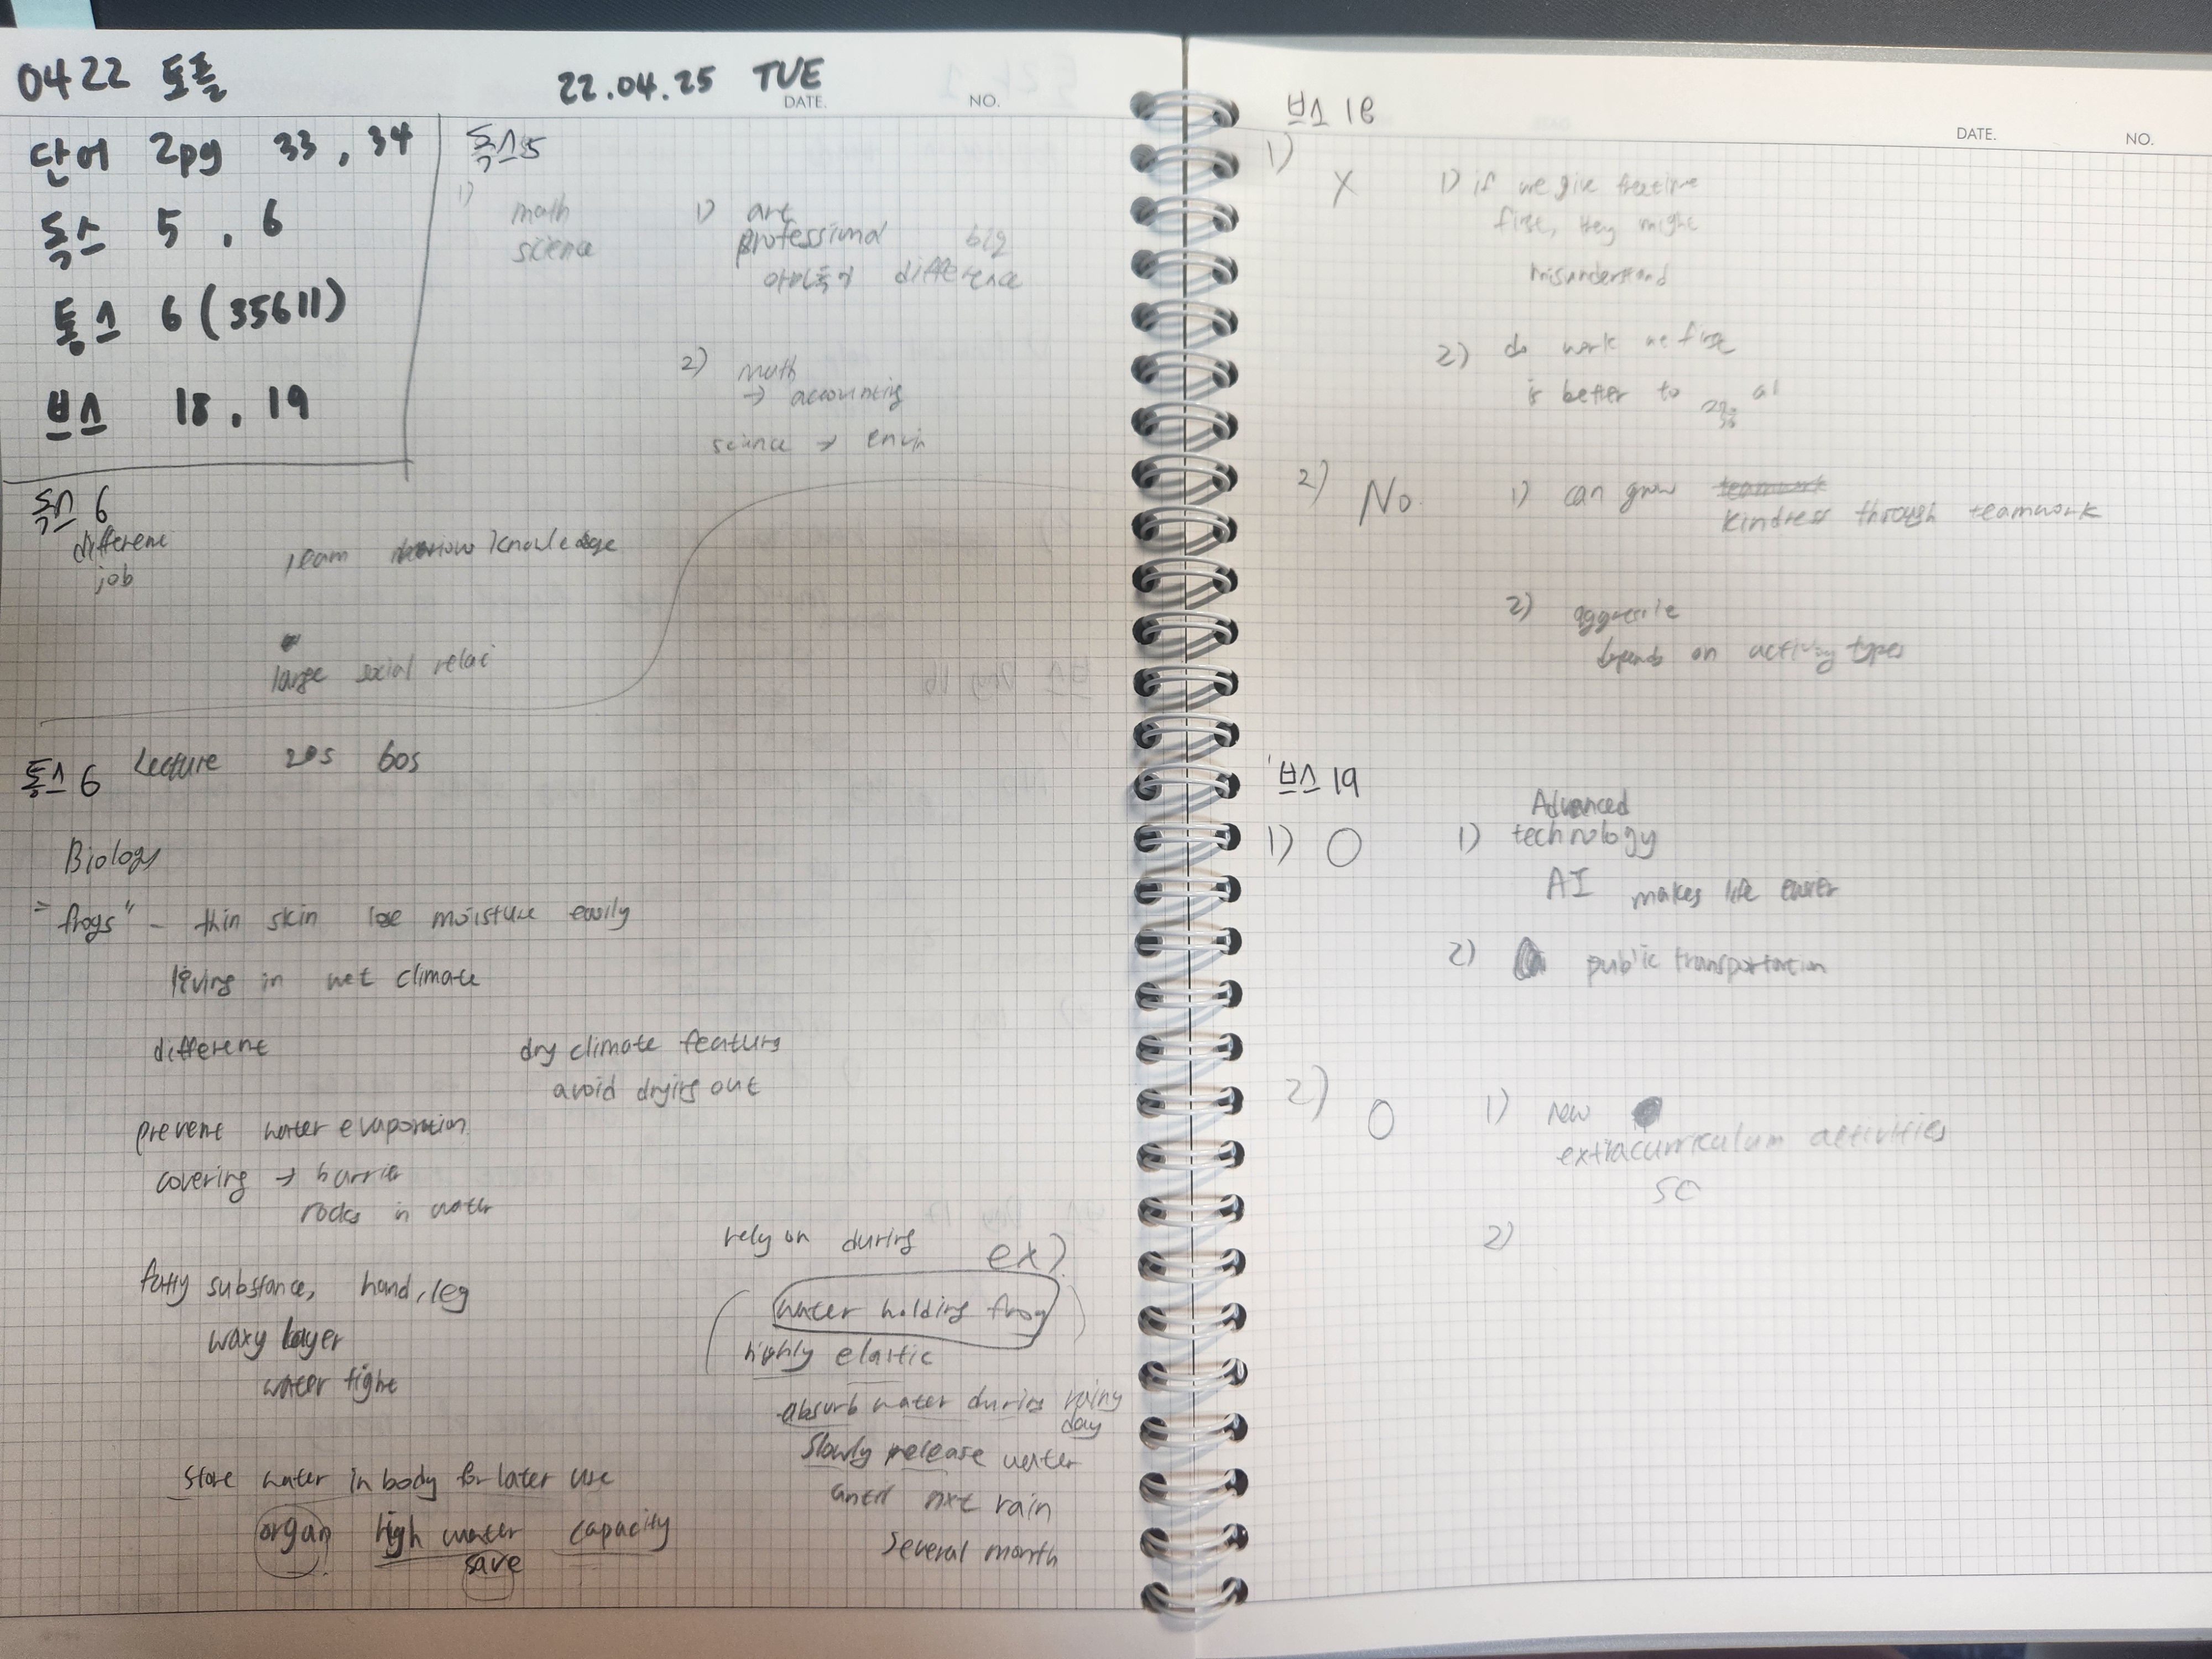 0422 토플
22.04.25 TUE
DATE.
NO.
단어 2pg 33, 34
독스 5, 6
통스 6 (35611)
브스 18, 19
독스5
1) math
science
1) art
professional big
difference
2) math
→ accounting
science → envir
독스 6
different
job
learn knowledge
large social relat
통스 6 Lecture 20s 60s
Biology
"frogs" - thin skin lose moisture easily
living in wet climate
different
dry climate features
avoid drying out
prevent water evaporation
covering → barrier
rocks in water
fatty substance, hand, leg
waxy layer
water tight
store water in body for later use
organ high water capacity
save
rely on during ex)
water holding frog
highly elastic
absorb water during rainy
day
slowly release water
until next rain
several month
브스 18
DATE.
NO.
1) X
1) if we give freetime
first, they might
misunderstand
2) do work first
is better to
2) No.
1) can grow teamwork
kindness through teamwork
2) aggressive
depends on activity types
브스 19
1) O
Advanced
1) technology
AI makes life easier
2) public transportation
2) O
1) new
extracurriculum activities
so
2)